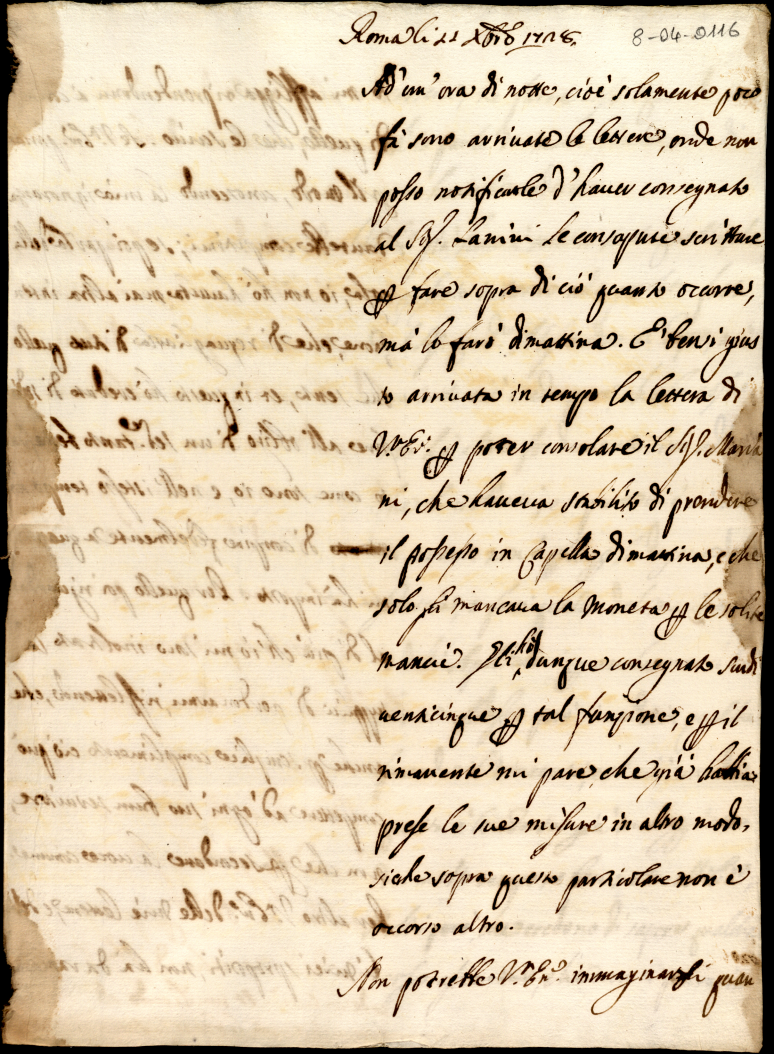 Roma li 11 Xbre 1728.
8-04-0116
Ad' un' ora di notte, cioè solamente poco
fà sono arrivate le lettere, onde non
posso notificarle d'haver consegnato
al Sig.r Lanini le consapute scritture
per fare sopra di ciò quanto occorre,
mà lo farò dimattina. E' bensi gius
to arrivata in tempo la lettera di
V.ra Em.za per poter consolare il Sig.r Maria
ni, che haveva stabilito di prendere
il possesso in Capella dimattina, e che
solo li mancava la moneta per le solite
mancie. Gli hò dunque consegnato scudi
venticinque per tal funzione, e per il
rimanente mi pare che già habbia
prese le sue misure in altro modo,
siche sopra questo particolare non è
occorso altro.
Non potrebbe V.ra Em.za immaginarsi quan